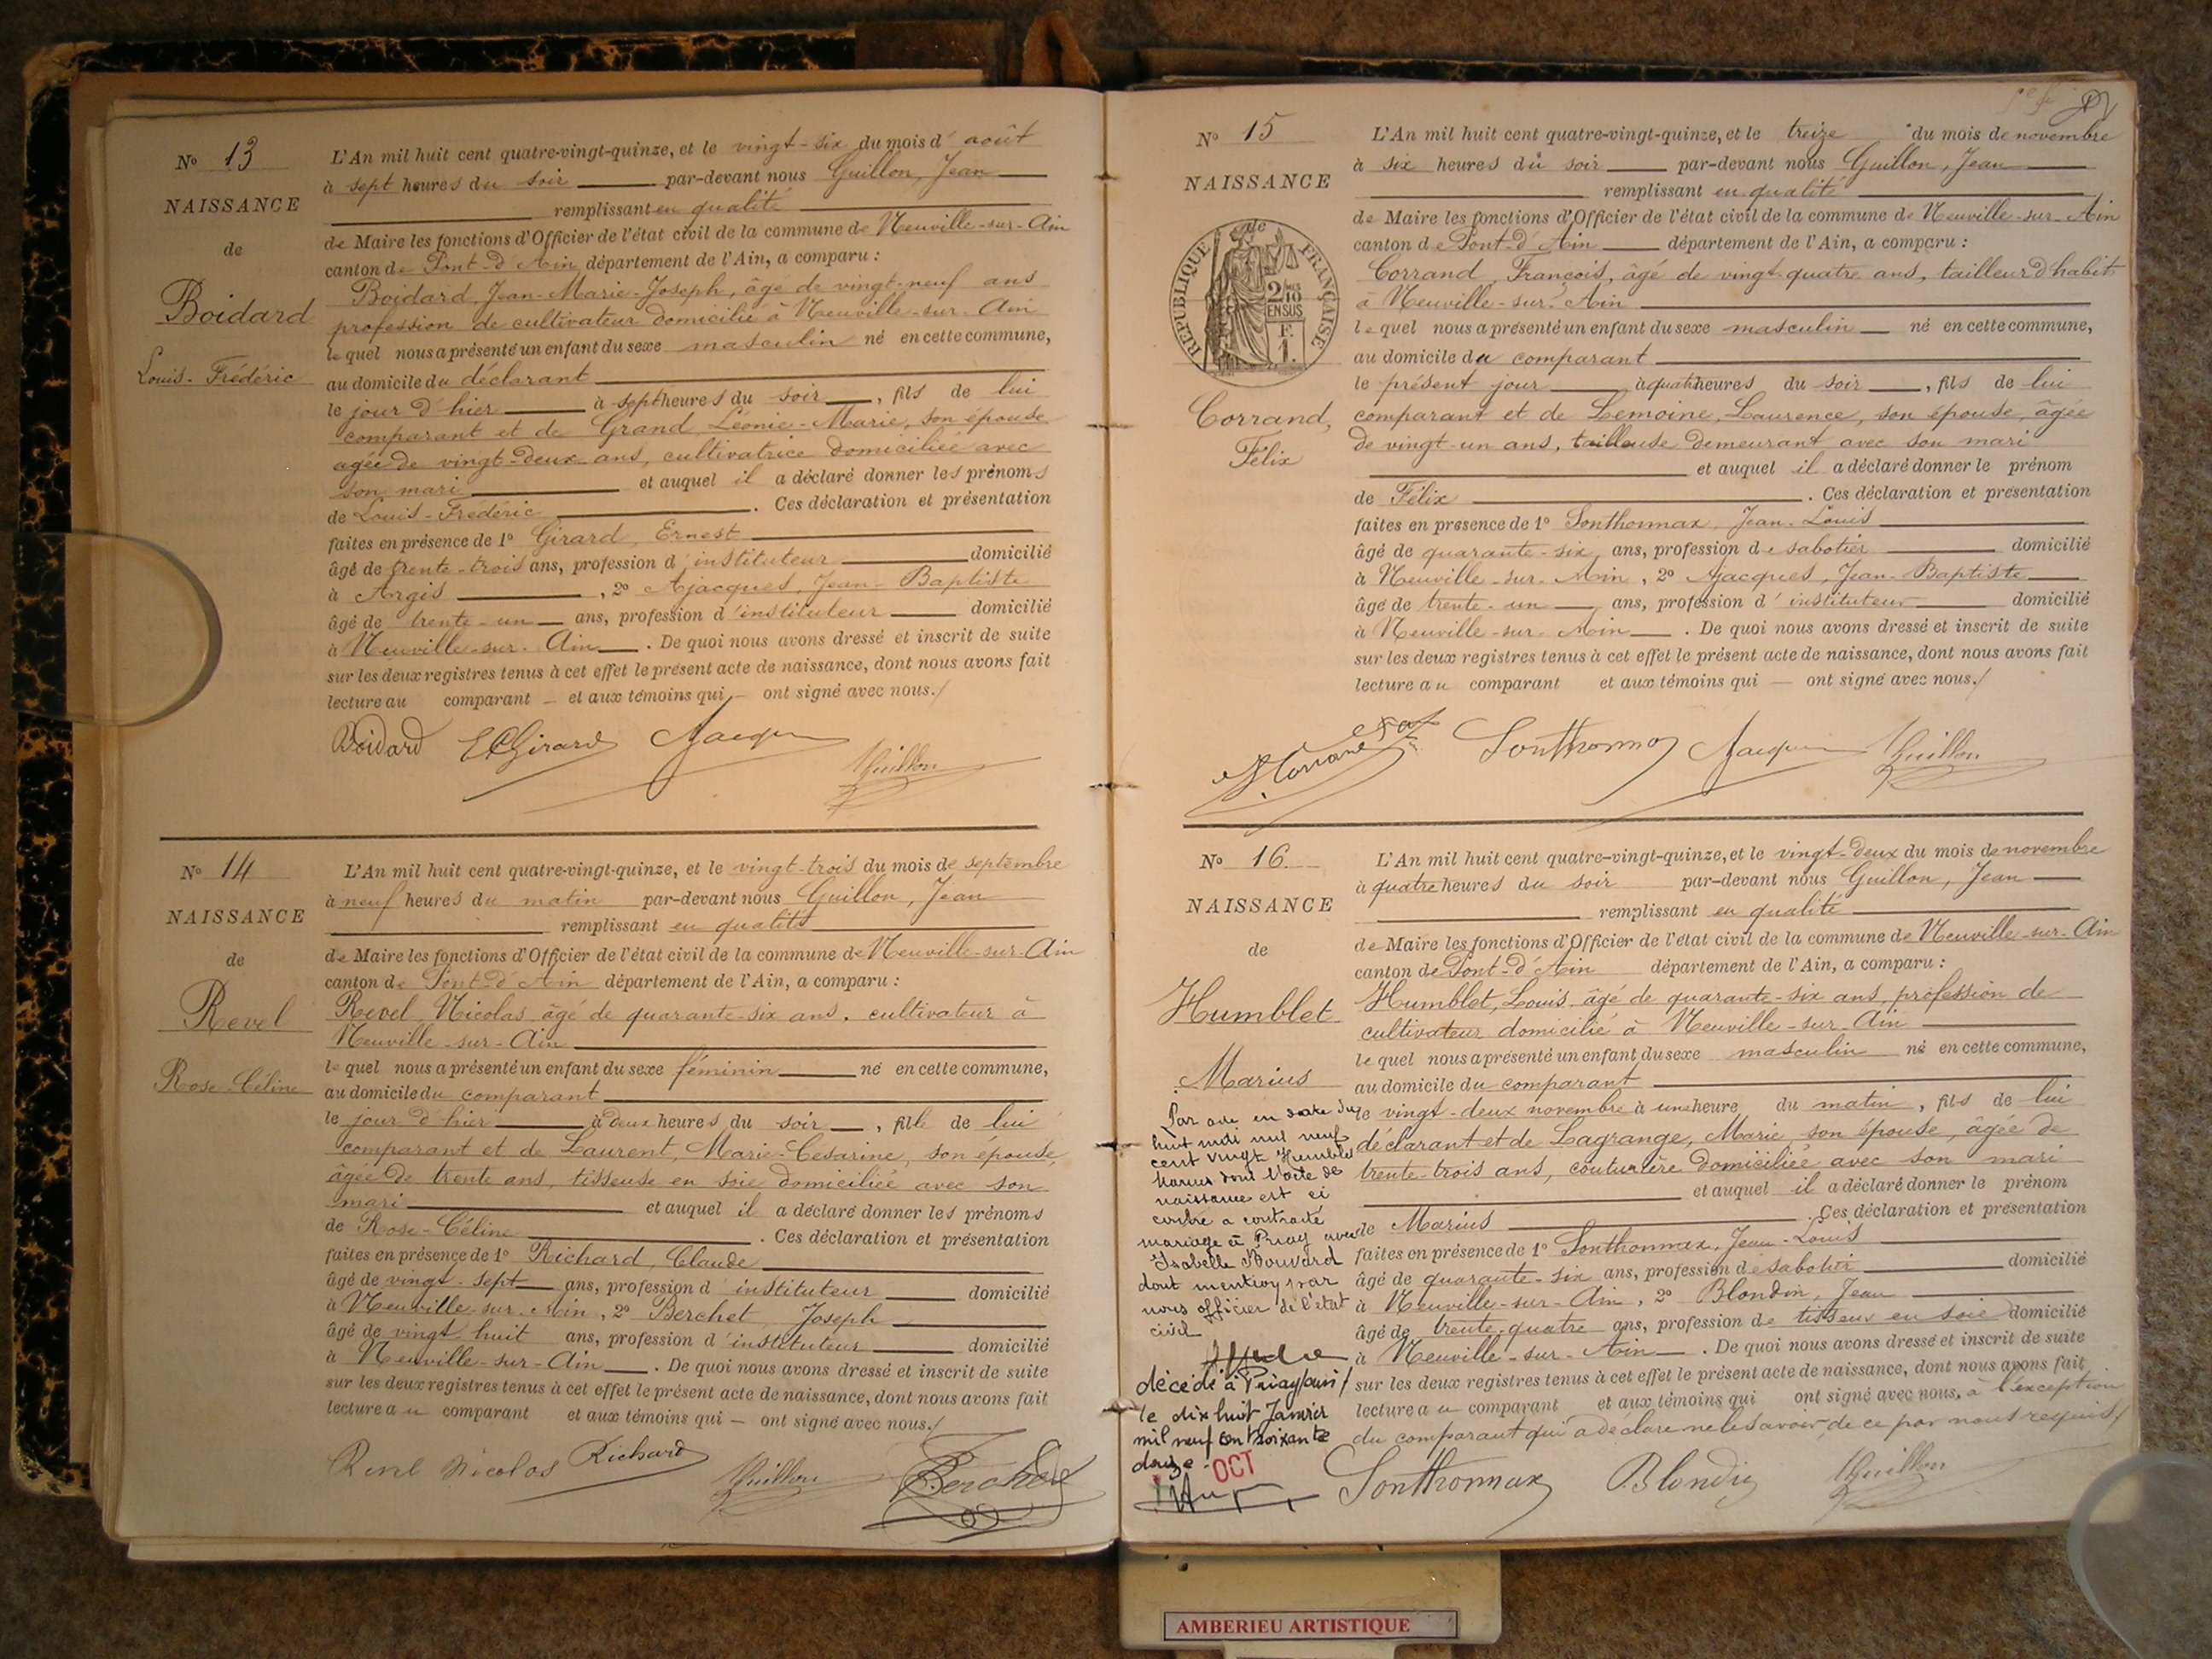 No 13
NAISSANCE
de
Boidard
Louis-Frédéric
L'An mil huit cent quatre-vingt-quinze, et le vingt-six du mois d'août
à sept heures du soir par-devant nous Guillon, Jean
remplissant en qualité
de Maire les fonctions d'Officier de l'état civil de la commune de Neuville-sur-Ain
canton de Pont-d'Ain département de l'Ain, a comparu :
Boidard, Jean-Marie-Joseph, âgé de vingt-neuf ans
profession de cultivateur domicilié à Neuville-sur-Ain
lequel nous a présenté un enfant du sexe masculin né en cette commune,
au domicile du déclarant
le jour d'hier à sept heures du soir, fils de lui
comparant et de Grand Léonie-Marie, son épouse
agée de vingt-deux ans, cultivatrice domiciliée avec
son mari et auquel il a déclaré donner les prénoms
de Louis-Frédéric. Ces déclaration et présentation
faites en présence de 1° Girard, Ernest
âgé de trente-trois ans, profession d'instituteur domicilié
à Argis, 2° Ajacques, Jean-Baptiste
âgé de trente-un ans, profession d'instituteur domicilié
à Neuville-sur-Ain. De quoi nous avons dressé et inscrit de suite
sur les deux registres tenus à cet effet le présent acte de naissance, dont nous avons fait
lecture au comparant et aux témoins qui ont signé avec nous./
Boidard E Girard Ajacques Guillon
No 14
NAISSANCE
de
Revel
Rose-Céline
L'An mil huit cent quatre-vingt-quinze, et le vingt-trois du mois de septembre
à neuf heures du matin par-devant nous Guillon, Jean
remplissant en qualité
de Maire les fonctions d'Officier de l'état civil de la commune de Neuville-sur-Ain
canton de Pont-d'Ain département de l'Ain, a comparu :
Revel, Nicolas âgé de quarante-six ans, cultivateur à
Neuville-sur-Ain
lequel nous a présenté un enfant du sexe féminin né en cette commune,
au domicile du comparant
le jour d'hier à deux heures du soir, fille de lui
comparant et de Laurent, Marie-Césarine, son épouse,
âgée de trente ans, tisseuse en soie domiciliée avec son
mari et auquel il a déclaré donner les prénoms
de Rose-Céline. Ces déclaration et présentation
faites en présence de 1° Richard, Claude
âgé de vingt-sept ans, profession d'instituteur domicilié
à Neuville-sur-Ain, 2° Berchet, Joseph
âgé de vingt huit ans, profession d'instituteur domicilié
à Neuville-sur-Ain. De quoi nous avons dressé et inscrit de suite
sur les deux registres tenus à cet effet le présent acte de naissance, dont nous avons fait
lecture au comparant et aux témoins qui ont signé avec nous./
Revel Nicolas Richard Guillon Berchet
No 15
NAISSANCE
de
RÉPUBLIQUE FRANÇAISE
2/10
EN SUS
F.
1.
Corrand,
Félix
L'An mil huit cent quatre-vingt-quinze, et le treize du mois de novembre
à six heures du soir par-devant nous Guillon, Jean
remplissant en qualité
de Maire les fonctions d'Officier de l'état civil de la commune de Neuville-sur-Ain
canton de Pont-d'Ain département de l'Ain, a comparu :
Corrand, François, âgé de vingt-quatre ans, tailleur d'habits
à Neuville-sur-Ain
lequel nous a présenté un enfant du sexe masculin né en cette commune,
au domicile du comparant
le présent jour à quatre heures du soir, fils de lui
comparant et de Lemoine, Laurence, son épouse, âgée
de vingt-un ans, tailleuse demeurant avec son mari
et auquel il a déclaré donner le prénom
de Félix. Ces déclaration et présentation
faites en présence de 1° Sonthonnax, Jean-Louis
âgé de quarante-six ans, profession de sabotier domicilié
à Neuville-sur-Ain, 2° Ajacques, Jean-Baptiste
âgé de trente-un ans, profession d'instituteur domicilié
à Neuville-sur-Ain. De quoi nous avons dressé et inscrit de suite
sur les deux registres tenus à cet effet le présent acte de naissance, dont nous avons fait
lecture au comparant et aux témoins qui ont signé avec nous./
Corrand Sonthonnax Ajacques Guillon
No 16
NAISSANCE
de
Humblet
Marius
Par acte en date du
huit mai mil neuf
cent vingt Humblet
Marius dont l'acte de
naissance est ci
contre a contracté
mariage à Priay avec
Isabelle Bouvard
dont mention par
nous officier de l'état
civil
décédé à Priay (Ain)
le dix huit Janvier
mil neuf cent soixante
douze.
OCT
L'An mil huit cent quatre-vingt-quinze, et le vingt-deux du mois de novembre
à quatre heures du soir par-devant nous Guillon, Jean
remplissant en qualité
de Maire les fonctions d'Officier de l'état civil de la commune de Neuville-sur-Ain
canton de Pont-d'Ain département de l'Ain, a comparu :
Humblet, Louis âgé de quarante-six ans, profession de
cultivateur domicilié à Neuville-sur-Ain
lequel nous a présenté un enfant du sexe masculin né en cette commune,
au domicile du comparant
le vingt-deux novembre à une heure du matin, fils de lui
déclarant et de Lagrange, Marie, son épouse, âgée de
trente-trois ans, couturière domiciliée avec son mari
et auquel il a déclaré donner le prénom
de Marius. Ces déclaration et présentation
faites en présence de 1° Sonthonnax, Jean-Louis
âgé de quarante-six ans, profession de sabotier domicilié
à Neuville-sur-Ain, 2° Blondin, Jean
âgé de trente-quatre ans, profession de tisseur en soie domicilié
à Neuville-sur-Ain. De quoi nous avons dressé et inscrit de suite
sur les deux registres tenus à cet effet le présent acte de naissance, dont nous avons fait
lecture au comparant et aux témoins qui ont signé avec nous, à l'exception
du comparant qui a déclaré ne le savoir, de ce par nous requis./
Sonthonnax Blondin Guillon
AMBERIEU ARTISTIQUE